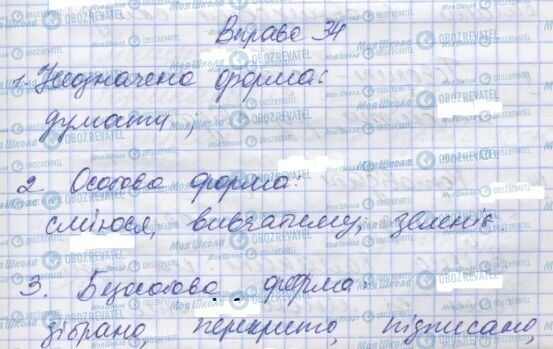 Вправа 34
1. Неозначена форма:
думати;
2. Особова форма:
сміюся, вивчатиму, зеленів.
3. Безособова форма:
зібрано, перекрито, підписано,